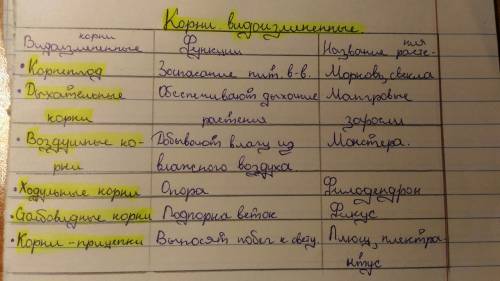 Корни видоизмененные.
корни
Видоизмененные Функции Название расте-
ния
• Корнеплод Запасание пит. в-в. Морковь, свекла
• Дыхательные Обеспечивают дыхание Мангровые
корни растения заросли
• Воздушные ко- Добывают влагу из Монстера.
рни влажного воздуха.
• Ходульные корни Опора Филодендрон
• Столбовидные корни Подпорка веток Фикус
• Корни-прицепки Выносят побег к свету. Плющ, плектра-
нтус